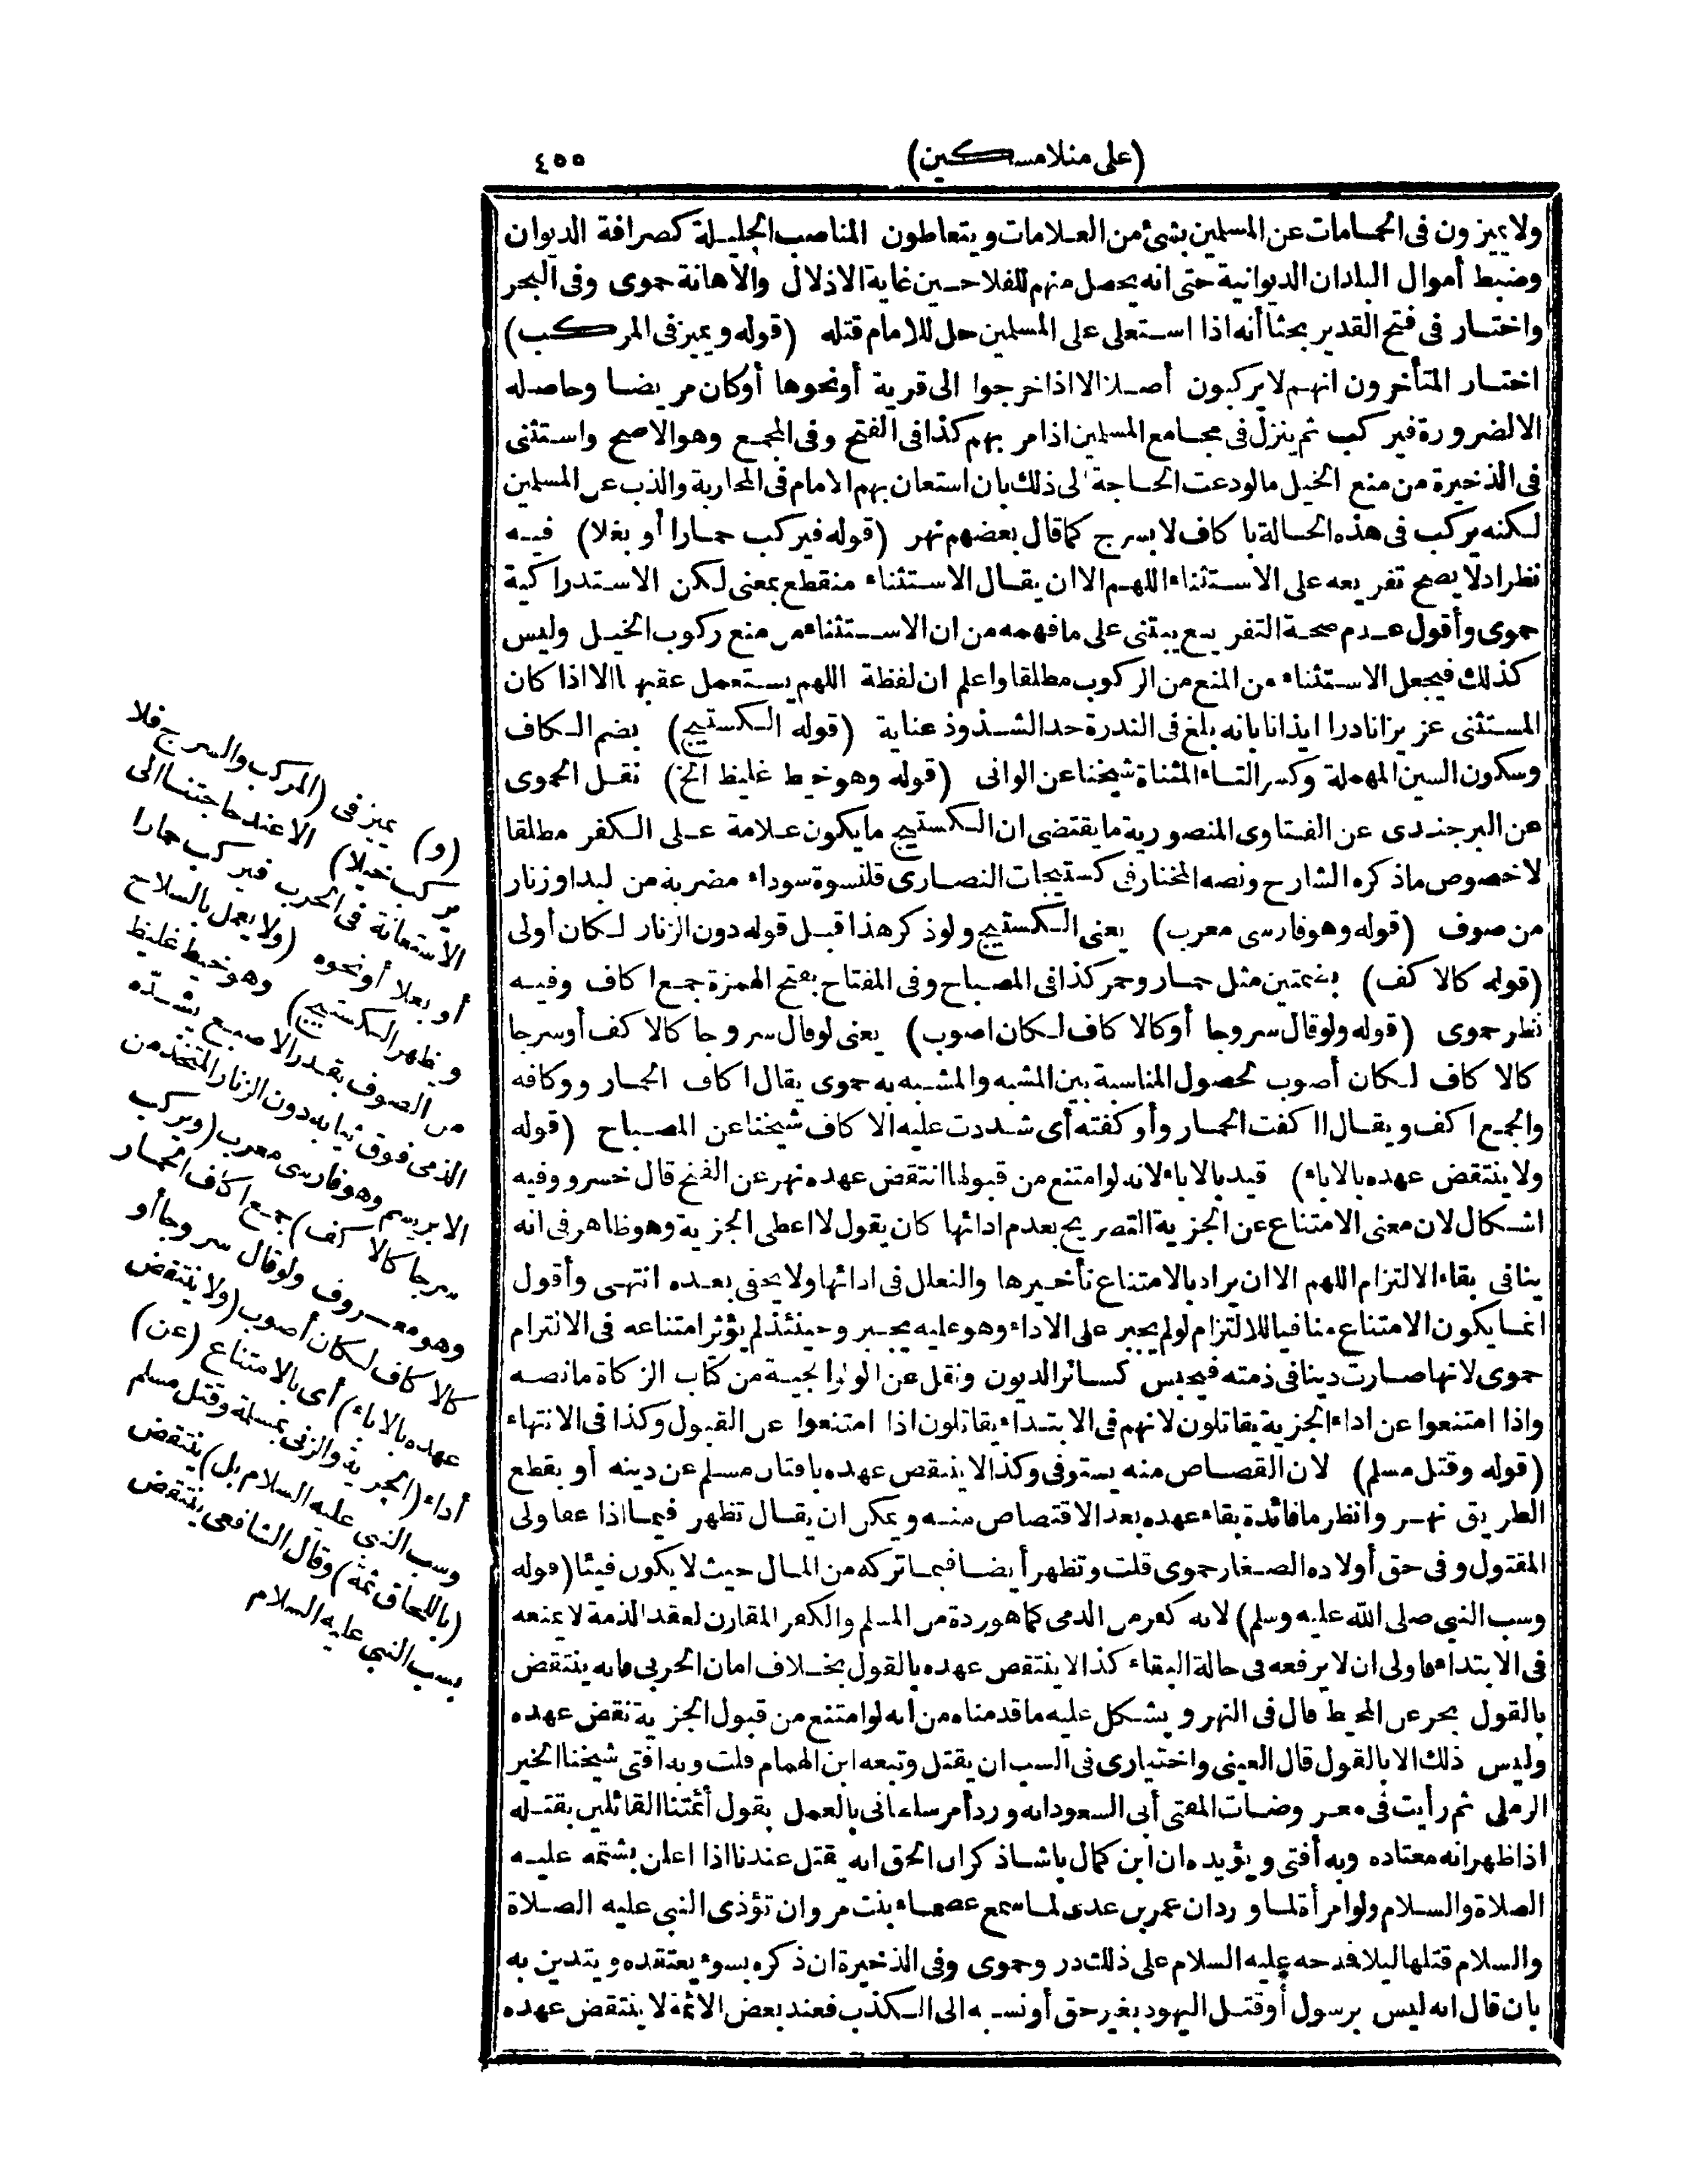 (على منلا مسكين) ٤٥٥
ولا يميزون فى الحمامات عن المسلمين بشئ من العلامات ويتعاطون المناصب الجليلة كصرافة الديوان
وضبط أموال البلدان الديوانية حتى انه يحصل منهم للفلاحين غاية الاذلال والاهانة حموى وفى البحر
واختار فى فتح القدير بحثا أنه اذا استعلى على المسلمين حل للامام قتله (قوله ويميز فى المركب)
اختار المتأخرون انهم لا يركبون أصلا الا اذا خرجوا الى قرية أونحوها أوكان مريضا وحاصله
الا لضرورة فيركب ثم ينزل فى مجامع المسلمين اذا مر بهم كذا فى الفتح وفى المجمع وهو الاصح واستثنى
فى الذخيرة من منع الخيل مالودعت الحاجة الى ذلك بان استعان بهم الامام فى المحاربة والذب عن المسلمين
لكنه يركب فى هذه الحالة با كاف لا بسرج كما قال بعضهم نهر (قوله فيركب حمارا أو بغلا) فيه
نظر اذ لا يصح تفريعه على الاستثناء اللهم الا ان يقال الاستثناء منقطع بمعنى لكن الاستدراكية
حموى وأقول عدم صحة التفريع يبتنى على ما فهمه من ان الاستثناء من منع ركوب الخيل وليس
كذلك فيجعل الاستثناء من المنع من الركوب مطلقا واعلم ان لفظة اللهم يستعمل عقبها الا اذا كان
المستثنى عزيزا نادرا ايذانا بانه بلغ فى الندرة حد الشذوذ عناية (قوله الكستيج) بضم الكاف
وسكون السين المهملة وكسر التاء المثناة شيخنا عن الوانى (قوله وهو خيط غليظ الخ) نقل الحموى
عن البرجندى عن الفتاوى المنصورية ما يقتضى ان الكستيج ما يكون علامة على الكفر مطلقا
لا خصوص ماذكره الشارح ونصه المختار فى كستيجات النصارى قلنسوة سوداء مضربة من لبد او زنار
من صوف (قوله وهو فارسى معرب) يعنى الكستيج ولوذكر هذا قبل قوله دون الزنار لكان أولى
(قوله كالاكف) بضمتين مثل حمار وحمر كذا فى المصباح وفى المفتاح بفتح الهمزة جمع اكاف وفيه
نظر حموى (قوله ولو قال سروجا أوكالاكاف لكان اصوب) يعنى لو قال سروجا كالاكف أوسرجا
كالاكاف لكان أصوب لحصول المناسبة بين المشبه والمشبه به حموى يقال اكاف الحمار ووكافه
والجمع اكف ويقال اا كفت الحمار وأوكفته أى شددت عليه الاكاف شيخنا عن المصباح (قوله
ولا ينتقض عهده بالاباء) قيد بالاباء لانه لو امتنع من قبولها انتقض عهده نهر عن الفتح قال خسرو وفيه
اشكال لان معنى الامتناع عن الجزية التصريح بعدم ادائها كان يقول لا اعطى الجزية وهو ظاهر فى انه
ينافى بقاء الالتزام اللهم الا ان يراد بالامتناع تأخيرها والتعلل فى ادائها ولا يخفى بعده انتهى وأقول
انما يكون الامتناع منافيا للالتزام لو لم يجبر على الاداء وهو عليه يجبر وحينئذ لم يؤثر امتناعه فى الالتزام
حموى لانها صارت دينا فى ذمته فيحبس كسائر الديون ونقل عن الولوالجية من كتاب الزكاة مانصه
واذا امتنعوا عن اداء الجزية يقاتلون لانهم فى الابتداء يقاتلون اذا امتنعوا عن القبول وكذا فى الانتهاء
(قوله وقتل مسلم) لان القصاص منه يستوفى وكذا لا ينتقض عهده بافتان مسلم عن دينه أو بقطع
الطريق نهر وانظر ما فائدة بقاء عهده بعد الاقتصاص منه ويمكن ان يقال تظهر فيما اذا عفا ولى
المقتول وفى حق أولاده الصغار حموى قلت وتظهر أيضا فيما تركه من المال حيث لا يكون فيئا (قوله
وسب النبى صلى الله عليه وسلم) لانه كفر من الذمى كما هو ردة من المسلم والكفر المقارن لعقد الذمة لا يمنعه
فى الابتداء فاولى ان لا يرفعه فى حالة البقاء كذا لا ينتقض عهده بالقول بخلاف امان الحربى فانه ينتقض
بالقول بحر عن المحيط قال فى النهر ويشكل عليه ما قدمناه من انه لو امتنع من قبول الجزية نقض عهده
وليس ذلك الا بالقول قال العينى واختيارى فى السب ان يقتل وتبعه ابن الهمام قلت وبه افتى شيخنا الخير
الرملى ثم رأيت فى معروضات المفتى أبى السعود انه ورد أمر سلطانى بالعمل بقول أئمتنا القائلين بقتله
اذا ظهر انه معتاده وبه أفتى ويؤيده ان ابن كمال باشا ذكر ان الحق انه يقتل عندنا اذا اعلن بشتمه عليه
الصلاة والسلام ولو امرأة لما ورد ان عمر بن عدى لما سمع عصماء بنت مروان تؤذى النبى عليه الصلاة
والسلام قتلها ليلا مدحه عليه السلام على ذلك در وحموى وفى الذخيرة ان ذكره بسوء يعتقده ويتدين به
بان قال انه ليس برسول أوقتل اليهود بغير حق أونسبه الى الكذب فعند بعض الائمة لا ينتقض عهده
(و) يميز فى (المركب والسرج فلا
يركب خيلا) الا عند حاجتنا الى
الاستعانة فى الحرب فيركب حمارا
أو بغلا أونحوه (ولا يعمل بالسلاح
ويظهر الكستيج) وهو خيط غليظ
من الصوف بقدر الاصبع يشده
الذمى فوق ثيابه دون الزنار المتخذ من
الابريسم وهو فارسى معرب (ويركب
سرجا كالاكف) جمع اكاف الحمار
وهو معروف ولو قال سروجا أو
كالاكاف لكان أصوب (ولا ينتقض
عهده بالاباء) أى بالامتناع (عن)
أداء (الجزية والزنى بمسلمة وقتل مسلم
وسب النبى عليه السلام بل) ينتقض
(باللحاق ثمة) وقال الشافعى ينتقض
بسب النبى عليه السلام